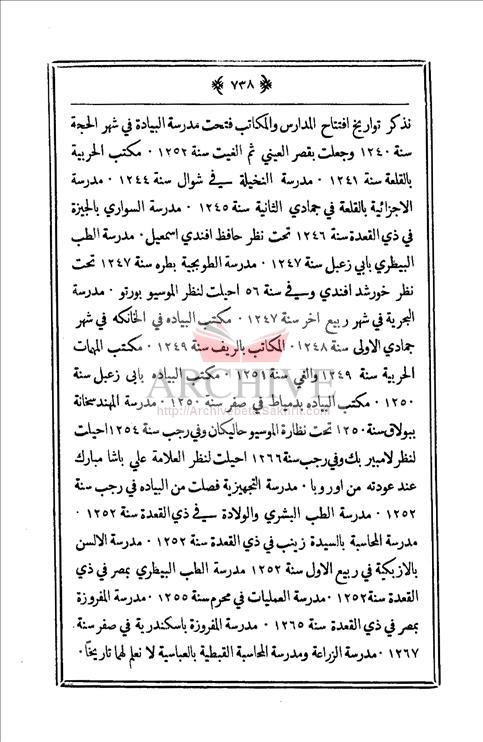 ﴿ ٧٣٨ ﴾
نذكر تواريخ افتتاح المدارس والمكاتب فتحت مدرسة البيادة في شهر الحجة
سنة ١٢٤٠ وجعلت بقصر العيني ثم الغيت سنة ١٢٥٢ ٠ مكتب الحربية
بالقلعة سنة ١٢٤١ ٠ مدرسة النخيلة في شوال سنة ١٢٤٤ ٠ مدرسة
الاجزائية بالقلعة في جمادي الثانية سنة ١٢٤٥ ٠ مدرسة السواري بالجيزة
في ذي القعدة سنة ١٢٤٦ تحت نظر حافظ افندي اسمعيل ٠ مدرسة الطب
البيطري بابي زعبل سنة ١٢٤٧ ٠ مدرسة الطوبجية بطره سنة ١٢٤٧ تحت
نظر خورشد افندي وفي سنة ٥٦ احيلت لنظر الموسيو بورتو ٠ مدرسة
البحرية في شهر ربيع اخر سنة ١٢٤٧ ٠ مكتب البياده في الخانكه في شهر
جمادي الاولى سنة ١٢٤٨ ٠ المكاتب بالريف سنة ١٢٤٩ ٠ مكتب المهمات
الحربية سنة ١٢٤٩ والغي سنة ١٢٥١ ٠ مكتب البياده بابي زعبل سنة
ARCHIVE
١٢٥٠ ٠ مكتب البياده بدمياط في صفر سنة ١٢٥٠ ٠ مدرسة المهندسخانة
http://Archivebeta.Sakhrit.com
ببولاق سنة ١٢٥٠ تحت نظارة الموسيو حاليكان وفي رجب سنة ١٢٥٤ احيلت
لنظر لامبير بك وفي رجب سنة ١٢٦٦ احيلت لنظر العلامة علي باشا مبارك
عند عودته من اوروبا ٠ مدرسة التجهيزية فصلت من البياده في رجب سنة
١٢٥٢ ٠ مدرسة الطب البشري والولادة في ذي القعدة سنة ١٢٥٢ ٠
مدرسة المحاسبة بالسيدة زينب في ذي القعدة سنة ١٢٥٢ ٠ مدرسة الالسن
بالازبكية في ربيع الاول سنة ١٢٥٢ مدرسة الطب البيطري بمصر في ذي
القعدة سنة ١٢٥٢ ٠ مدرسة العمليات في محرم سنة ١٢٥٥ ٠ مدرسة المفروزة
بمصر في ذي القعدة سنة ١٢٦٥ ٠ مدرسة المفروزة باسكندرية في صفر سنة
١٢٦٧ ٠ مدرسة الزراعة ومدرسة المحاسبة القبطية بالعباسية لا نعلم لهما تاريخًا ٠